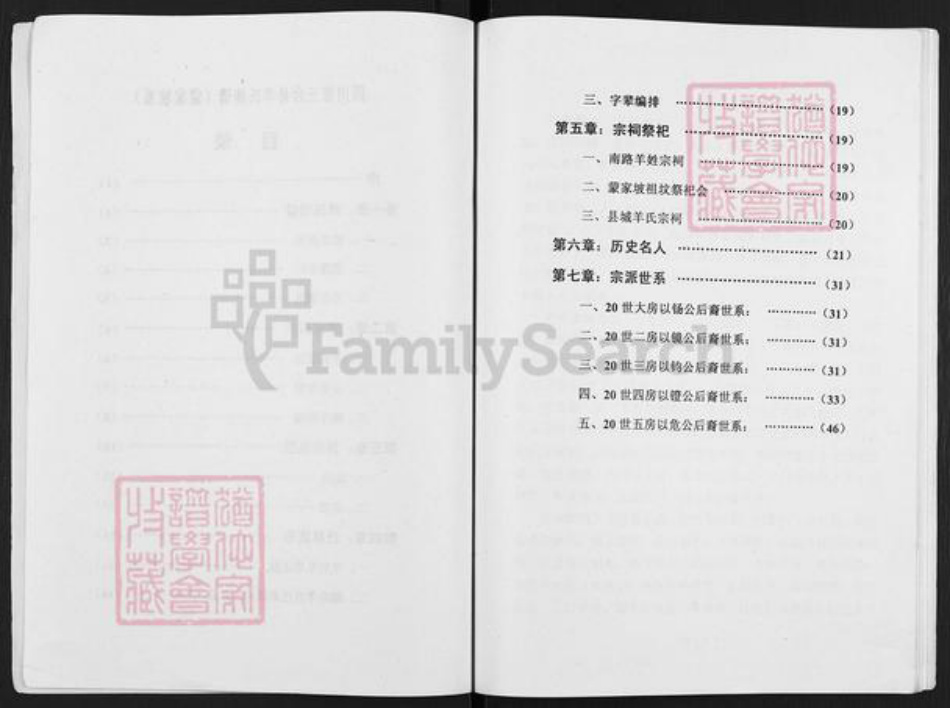 三、字辈编排 ……………………(19)
第五章：宗祠祭祀 ……………………(19)
一、南路羊姓宗祠 ……………………(19)
二、蒙家坡祖坟祭祀会 ……………………(20)
三、县城羊氏宗祠 ……………………(20)
第六章：历史名人 ……………………(21)
第七章：宗派世系 ……………………(31)
一、20 世大房以钖公后裔世系： …………(31)
二、20 世二房以镜公后裔世系： …………(31)
三、20 世三房以钧公后裔世系： …………(31)
四、20 世四房以镫公后裔世系： …………(33)
五、20 世五房以危公后裔世系： …………(46)
FamilySearch
猶他家
譜學會
收藏
猶他家
譜學會
收藏